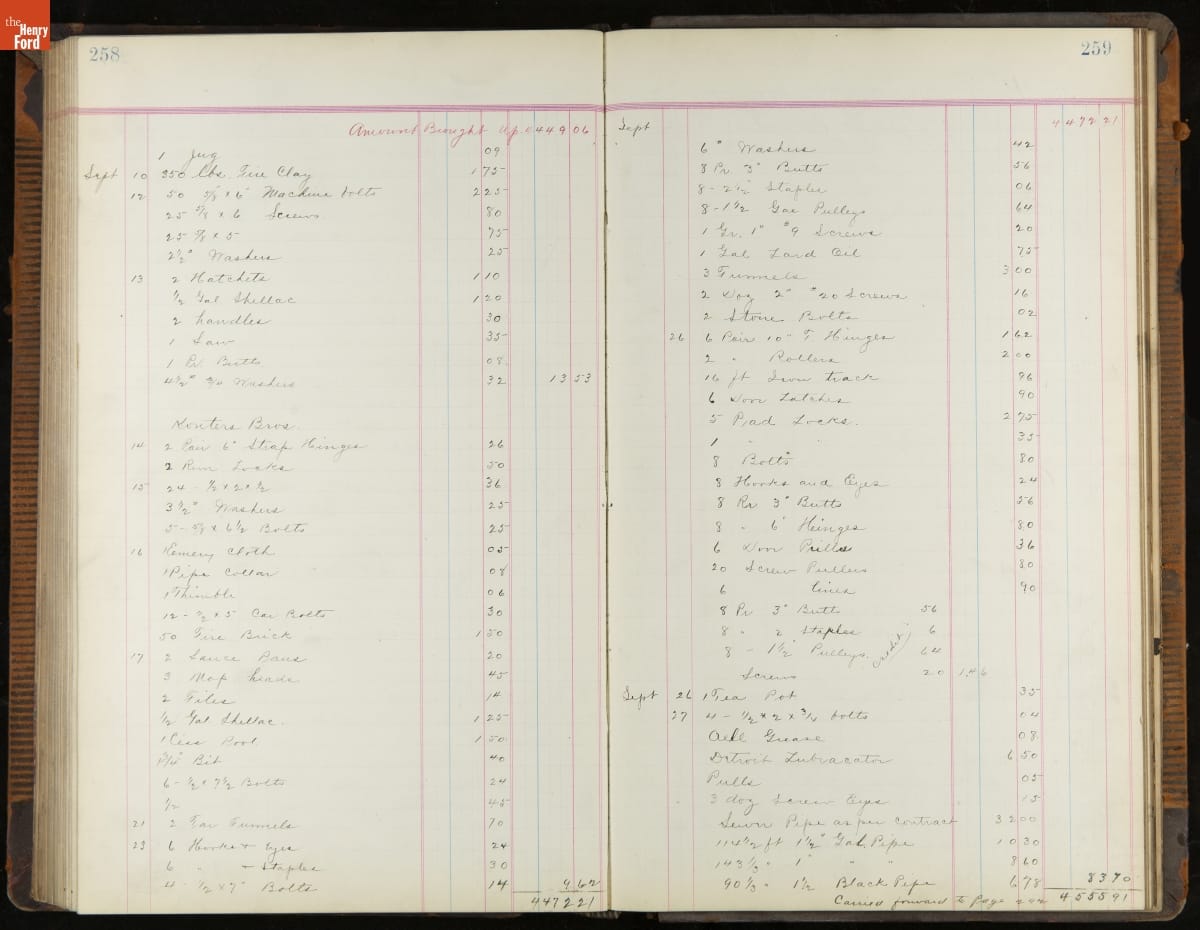 the
Henry
Ford
258
Amount Brought Up. 4449 06
1 Jug 09
Sept 10 350 lbs. Fire Clay 1 75
12 50 5/8 x 6 Machine bolts 2 25
25 5/8 x 6 Screws 80
25 5/8 x 5 75
2 1/2" Washers 25
13 2 Hatchets 1 10
1/2 Gal Shellac 1 20
2 handles 30
1 Saw 35
1 Pr. Butts 08
4 1/2" Washers 32 13 53
Konters Bros.
14 2 Pair 6" Strap Hinges 26
2 Rim Locks 50
15 24 - 1/2 x 2 x 1/2 36
3 1/2" Washers 25
5 - 5/8 x 6 1/2 Bolts 25
16 Kemery Cloth 05
1 Pipe Collar 08
1 Thimble 06
12 - 1/2 x 5 Car Bolts 30
50 Fire Brick 1 50
17 2 Sauce Pans 20
3 Mop heads 45
2 Files 14
1/2 Gal Shellac. 1 25
1 50
Bit 40
6 - 1/2 x 7 1/2 Bolts 24
1/2 45
21 2 Tar Funnels 70
23 6 Hooks + Eyes 24
6 " + Staples 30
4 - 1/2 x 7" Bolts 14 9 62
4472 21
259
Sept 4472 21
6" Washers 42
8 Pr. 3" Butts 56
8 - 2 1/2" Staples 06
8 - 1 1/2 Gal Pulleys 64
1 Gr. 1" #9 Screws 20
1 Gal Lard Oil 75
3 Funnels 3 00
2 Doz 2" #20 Screws 16
2 Stone Bolts 02
26 6 Pair 10" T Hinges 1 62
2 " Rollers 2 00
16 ft Iron track 96
6 Door Latches 90
5 Pad Locks. 2 75
1 " 35
8 Bolts 80
8 Hooks and Eyes 24
8 Pr. 3" Butts 56
8 " 6" Heinges 80
6 Door Pulls 36
20 Screw Pullies 80
6 lines 90
8 Pr 3" Butts 56
8 " 2 Staples 6
8 - 1 1/2" Pulleys 64
Screws 20 1.46
Sept 26 1 Tea Pot 35
27 4 - 1/2 x 2 x 3/4 bolts 04
Axle Grease 08
Detroit Lubracator 6 50
Pulls 05
3 doz Screw Eyes 15
Sewer Pipe as per contract 32 00
114 1/2 ft 1 1/2" Gal. Pipe 10 30
143 1/3 " 1" " " 8 60
90 1/3 " 1 1/2 Black Pipe 6 78 83 70
Carried forward to Page 4555 91